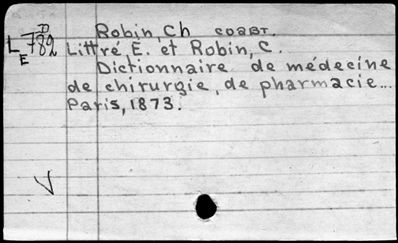 Robin, Ch соавт.
D
L 782
E
Littré, E. et Robin, C.
Dictionnaire de médecine
de chirurgie, de pharmacie...
Paris, 1873.